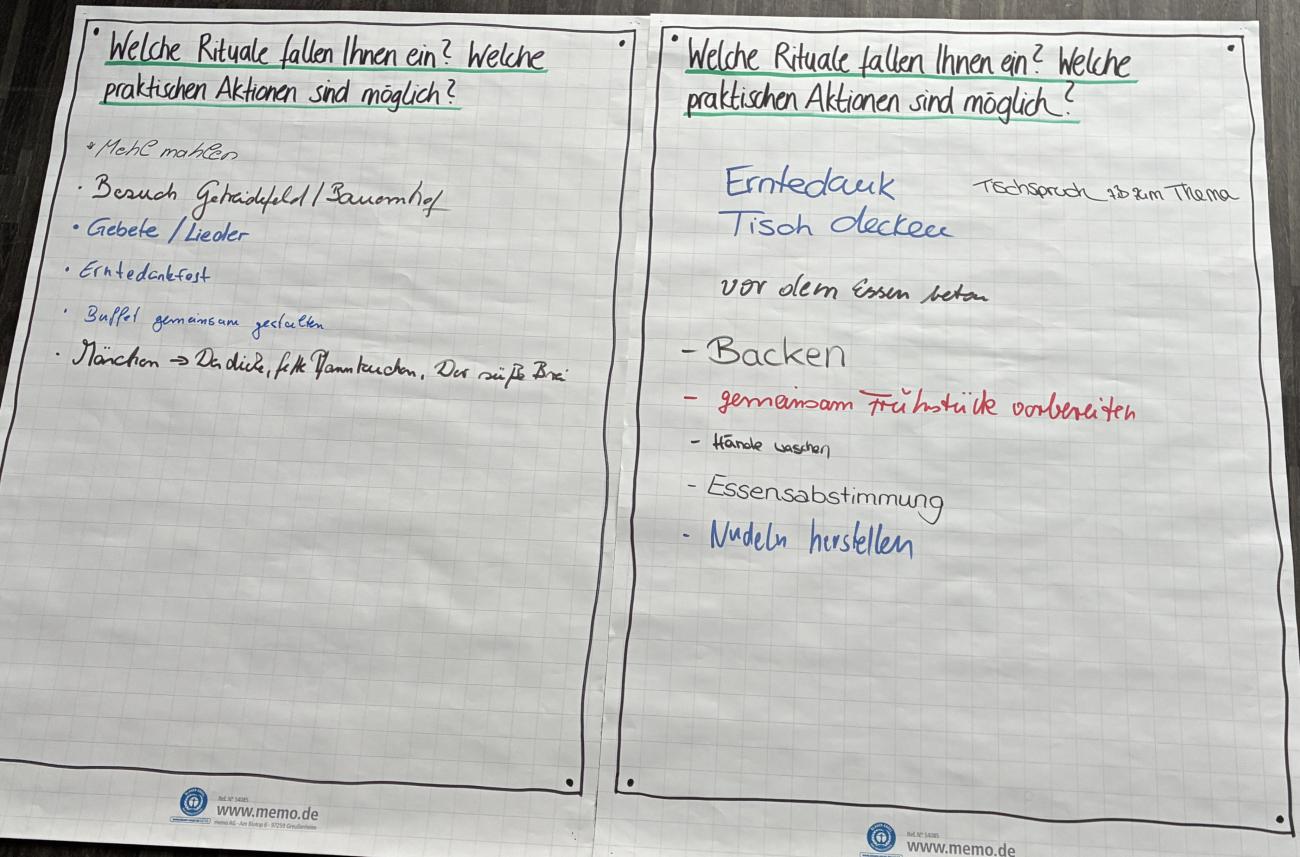 Welche Rituale fallen Ihnen ein? Welche
praktischen Aktionen sind möglich?
* Mehl mahlen
• Besuch Getreidefeld/Bauernhof
• Gebete / Lieder
• Erntedankfest
• Buffet gemeinsam gestalten
• Märchen → Der dicke, fette Pfannkuchen, Der süße Brei
Ref. N° 54085
www.memo.de
memo AG - Am Biotop 6 - 97259 Greußenheim
Welche Rituale fallen Ihnen ein? Welche
praktischen Aktionen sind möglich?
Erntedank
Tischspruch zb zum Thema
Tisch decken
vor dem Essen beten
- Backen
- gemeinsam Frühstück vorbereiten
- Hände waschen
- Essensabstimmung
- Nudeln herstellen
Ref. N° 54085
www.memo.de